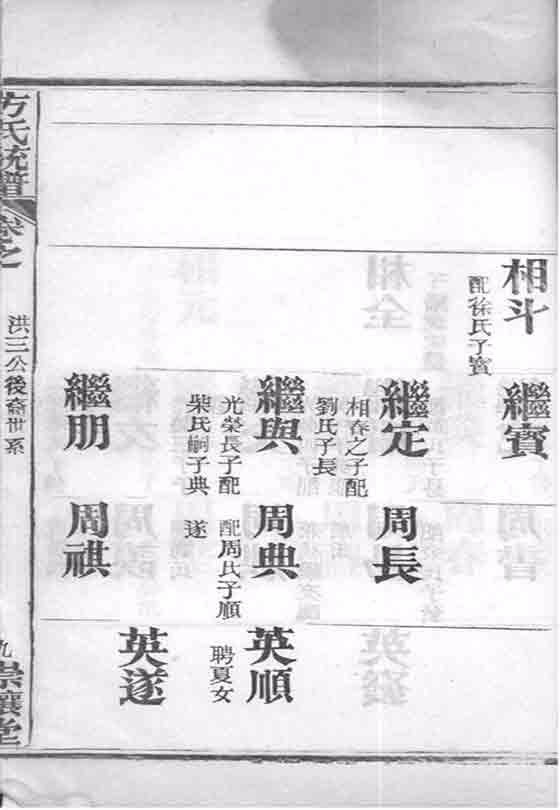 相斗
配徐氏子賓
繼賓
繼定
相春之子配
劉氏子長
周長
繼與
光榮長子配
柴氏嗣子典
周典
配周氏子順
遂
英順
聘夏女
英遂
繼朋
周祺
方氏統譜
卷之
洪三公後裔世系
九